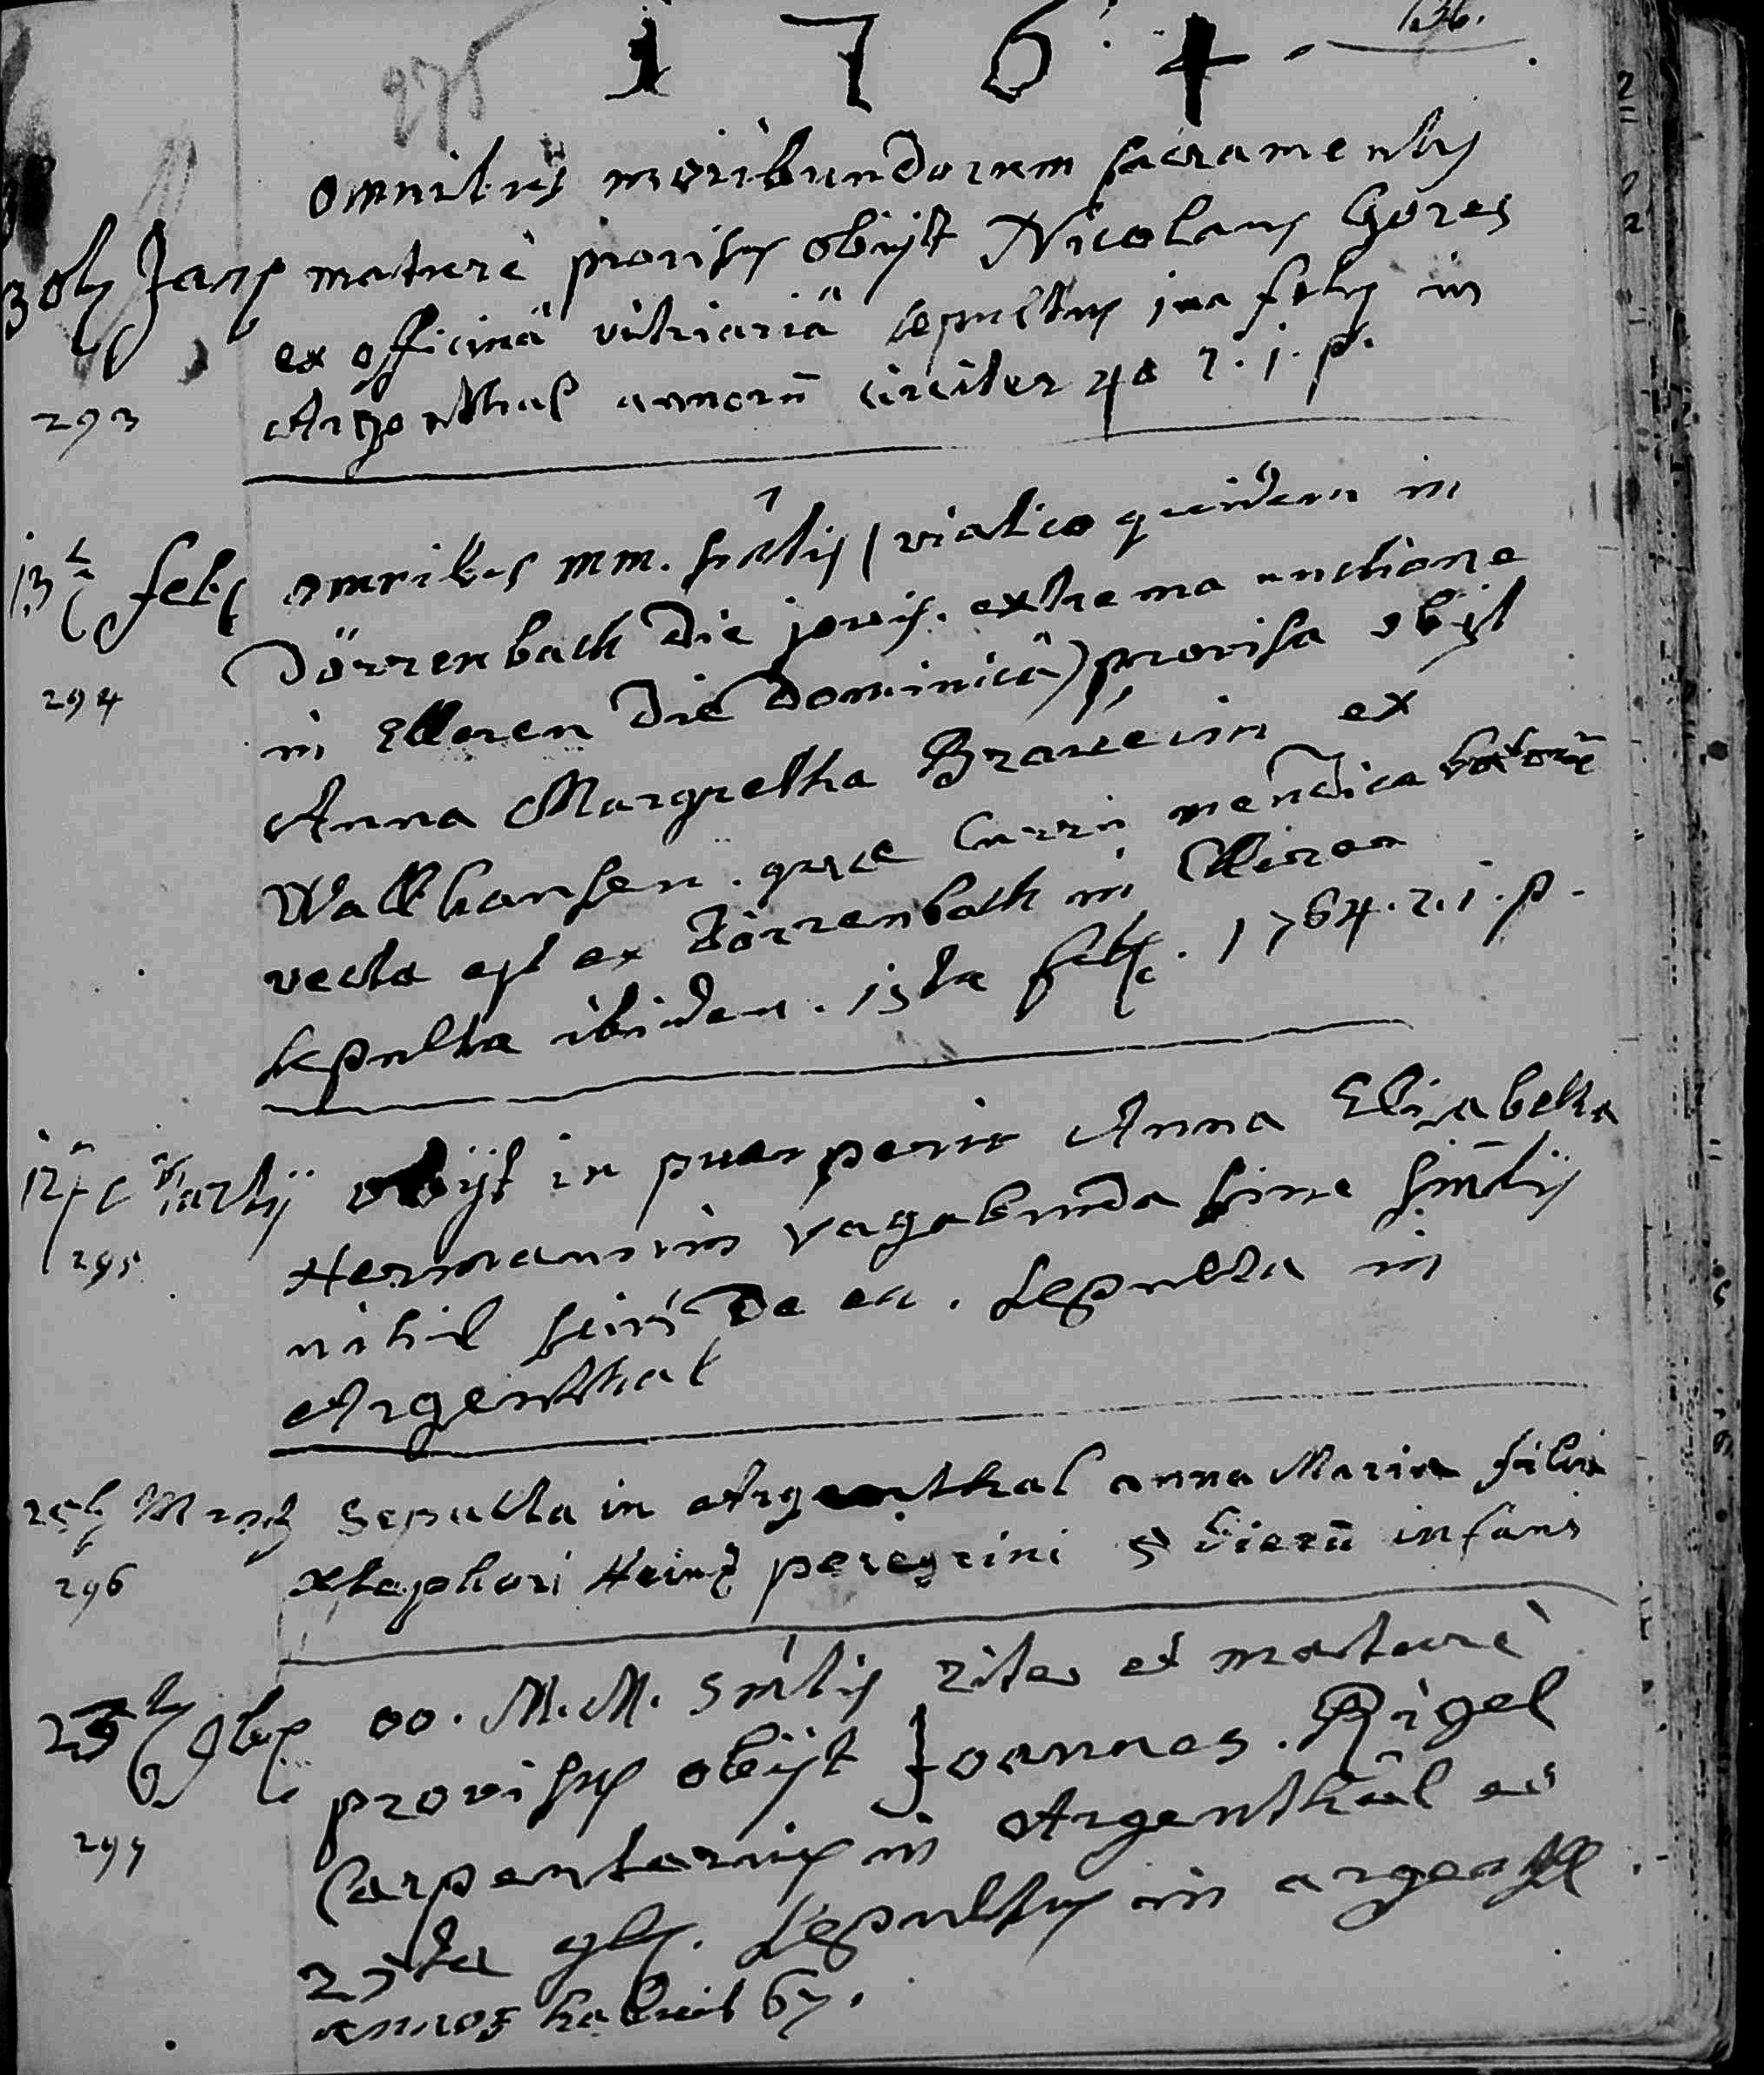 1764
136.
275
omnibus moribundorum sacramentis
30ti Jary maturè provisus obijt Nicolaus Gores
ex officinâ vitriariâ sepultus 1ma febry in
293
Argenthal annorū circiter 40 r. i. p.
13ta feby omnibus mm. sātis (viatico quidem in
Dörrenbach die jovis. extrema unctione
294
in Elleren die dominicâ) provisa obijt
Anna Margretha ex
Wallhausen. quae curru mendica
vecta est ex Dörrenbach in Elleren
sepulta ibidem. 15ta feby. 1764. r. i. p.
12ta Martij obijt in puerperio Anna Elisabetha
295
Hermannin vagabunda sine smtis
nihil scivi de ea. sepulta in
Argenthal
25ti Martij Sepulta in Argenthal anna Maria filia
296
Xstophori Heintz peregrini 5 dierū infans
23ti 9bris oo. M. M. smtis rite et maturè
provisus obijt Joannes Rigel
297
Carpentarius in Argenthal et
25ta 9bris. sepultus in argenthl
annos habuit 67.